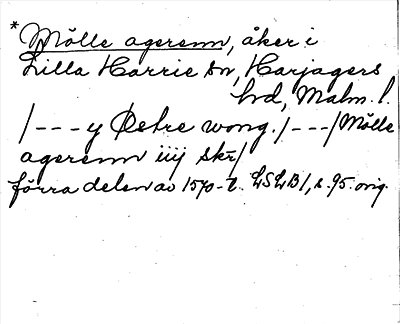 * Mölle agerenn, åker i
Lilla Harrie sn, Harjagers
hd, Malm. l.
/---y Østre wong./---/Mölle
agerenn iiij skr/
förra delen av 1570-t. LSLB1, s. 95. orig.